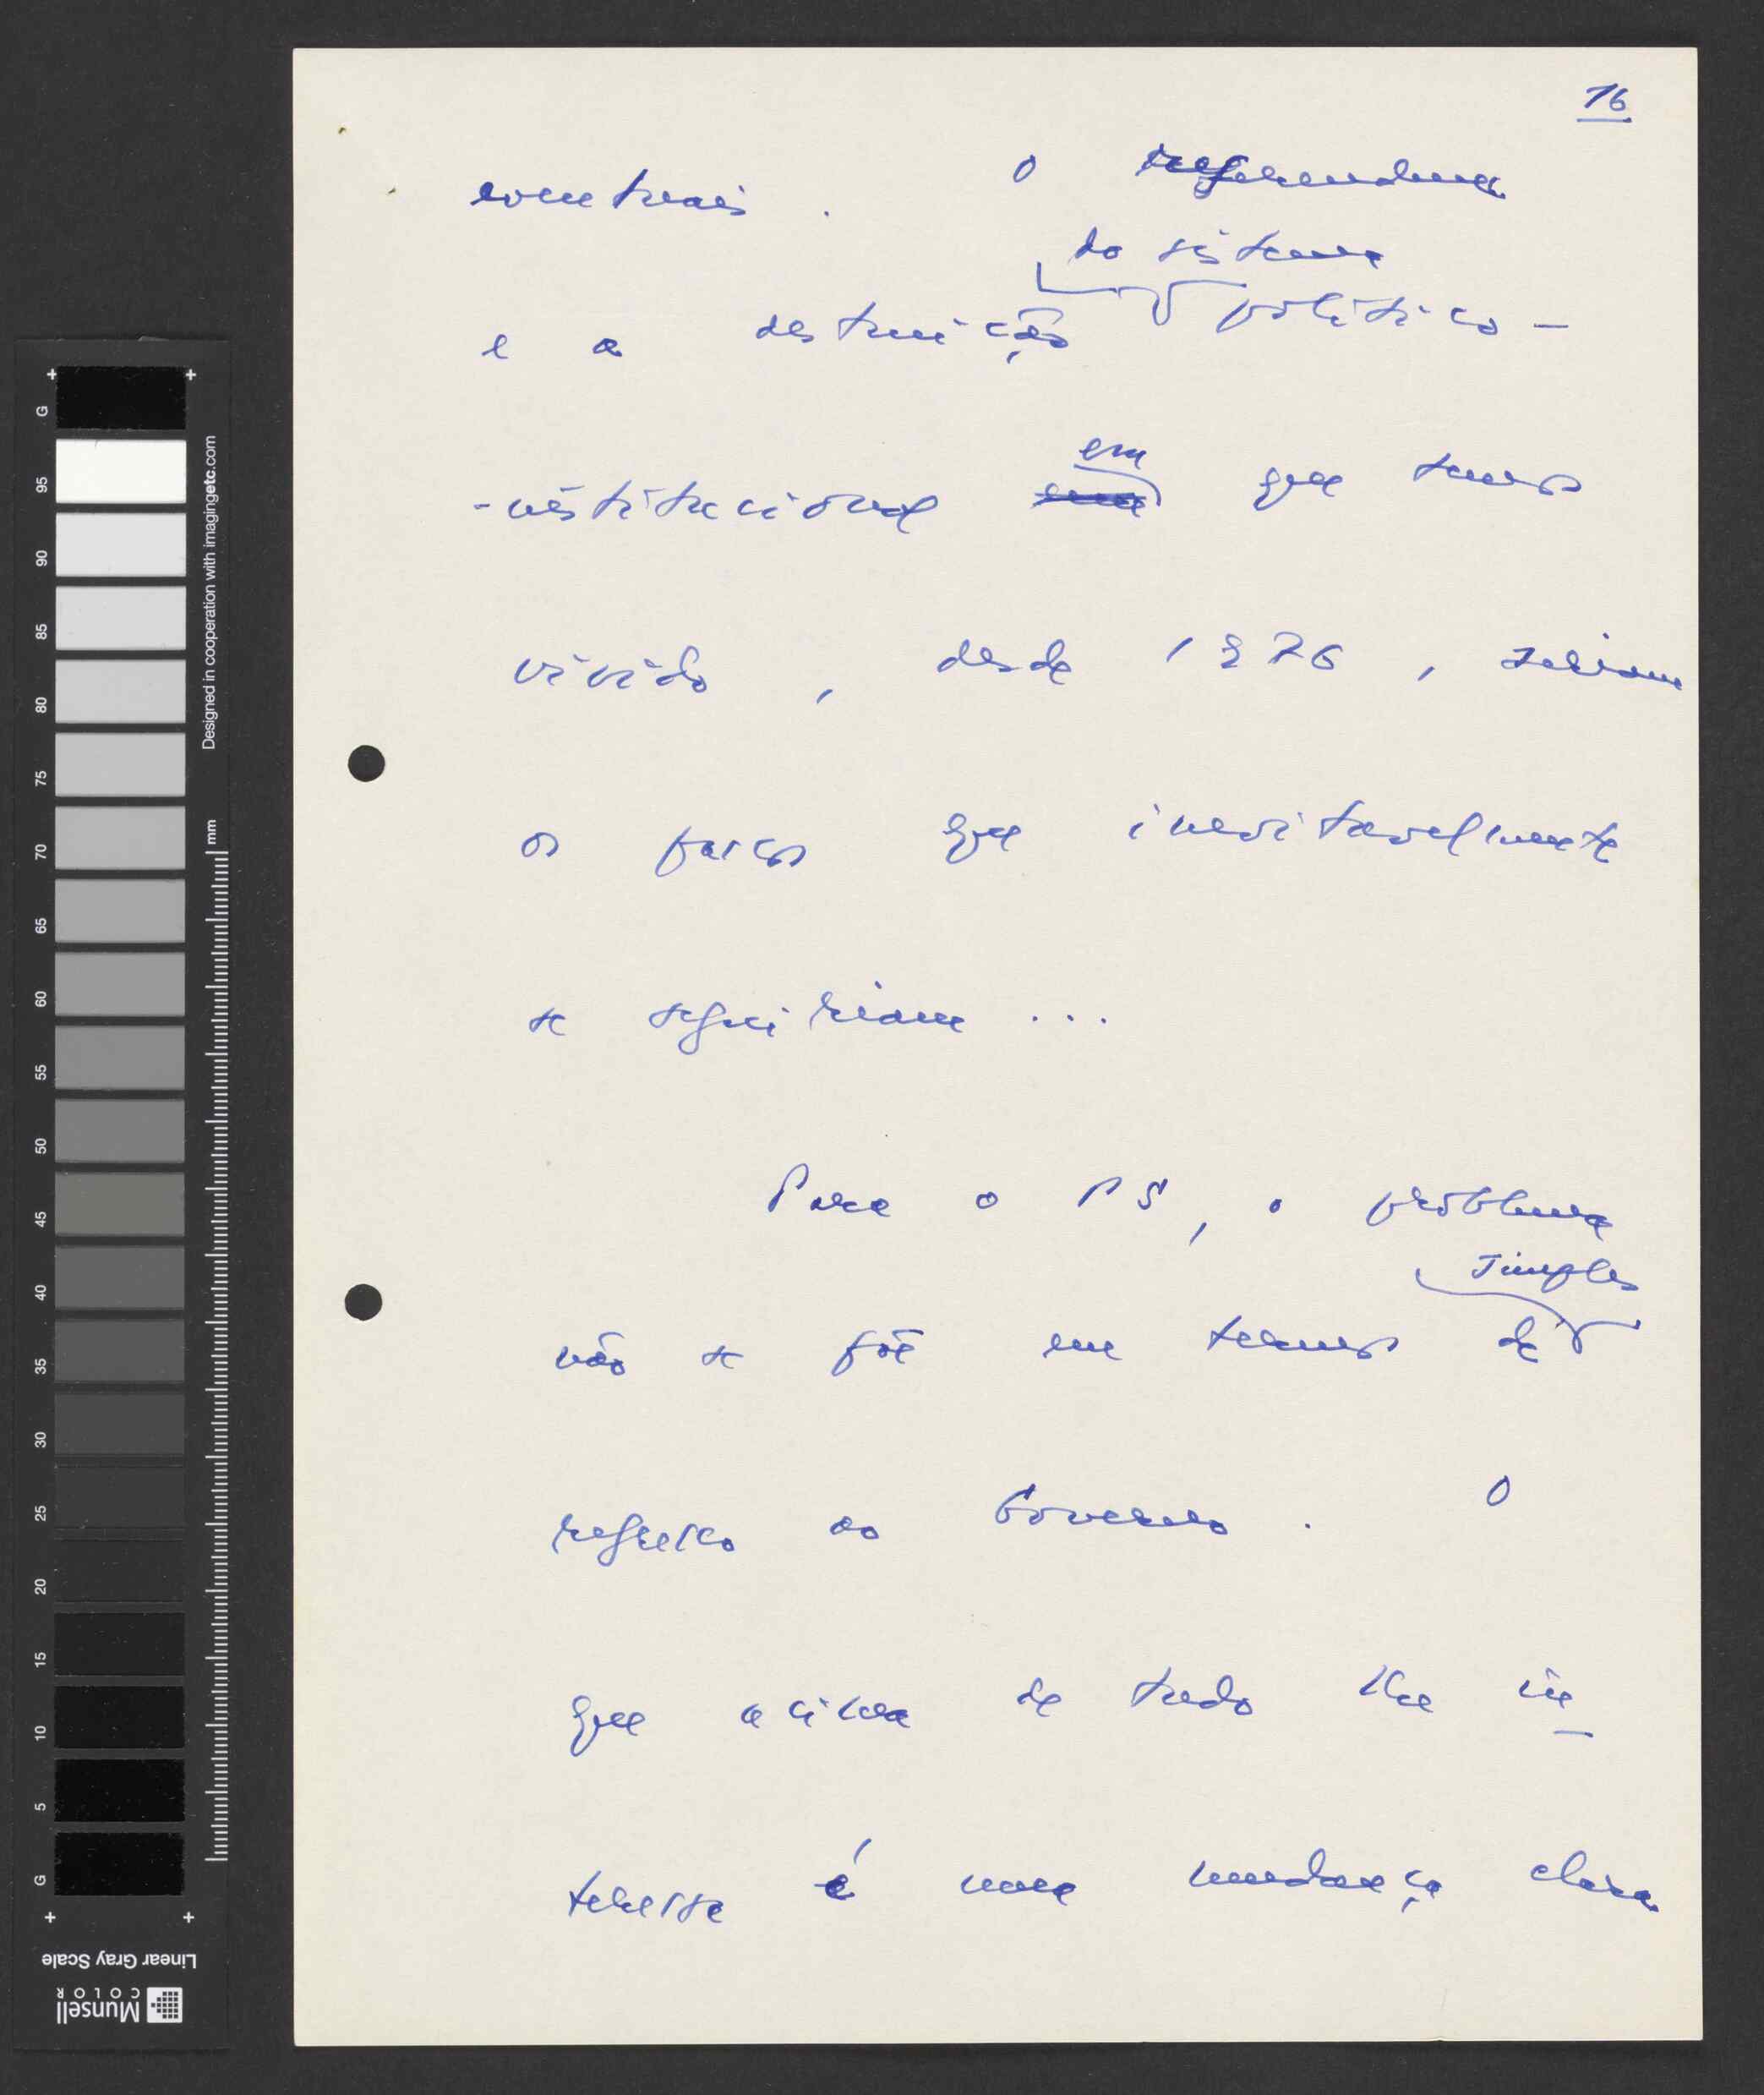 16
eventuais. O referendum
do sistema
e a destruição político-
em
-institucional que temos
vivido, desde 1976, seriam
os passos que inevitavelmente
se seguiriam ...
Para o PS, o problema
simples
não se põe em termos de
regresso ao Governo. O
que acima de tudo lhe in
teressa é uma mudança clara
G
95
90
85
80
75
70
65
60
55
50
45
40
35
30
25
20
15
10
5
G
Designed in cooperation with imagingetc.com
mm
Linear Gray Scale
Munsell
COLOR